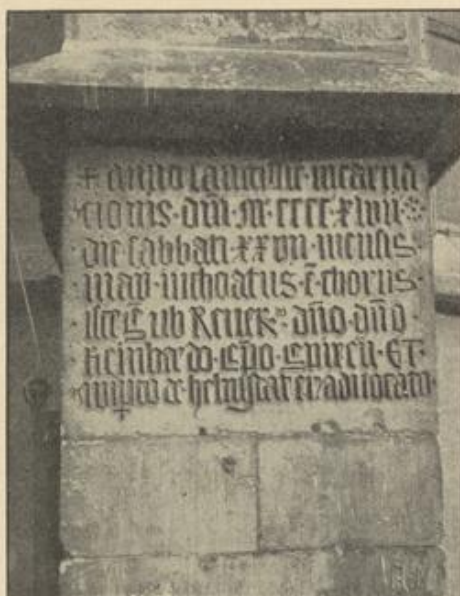 + anno sanctissie incarna
cionis · dni · M · cccc · xlvii ·
die sabbati · xxvii · mensis
· may · inchoatus · ē · chorus
· iste · sub Reuer · dno · dno
· Reinhardo · Epo · Et
de helmstat et advocato ·